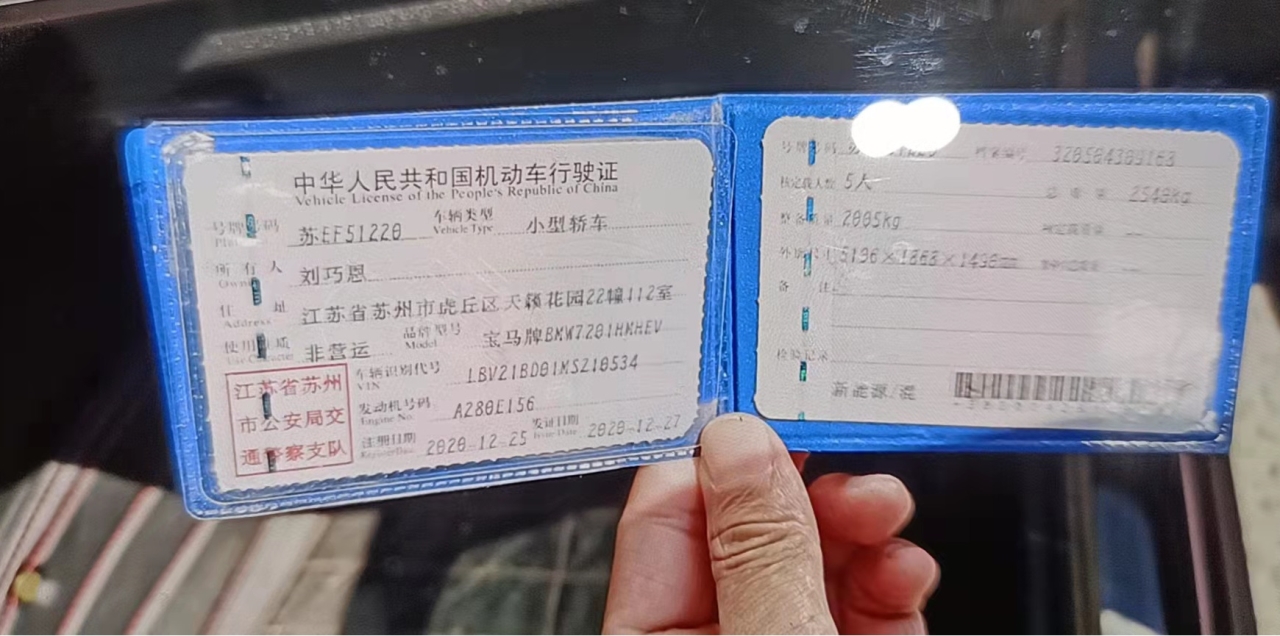 中华人民共和国机动车行驶证
Vehicle License of the People's Republic of China
号牌号码 苏EF51220 车辆类型 Vehicle Type 小型轿车
所有人 Owner 刘巧恩
住址 Address 江苏省苏州市虎丘区天籁花园22幢112室
使用性质 非营运 品牌型号 Model 宝马牌BMW7201HMHEV
车辆识别代号 VIN LBV21BD01MSZ10534
发动机号码 Engine No. A280E156
注册日期 Register Date 2020-12-25 发证日期 Issue Date 2020-12-27
江苏省苏州
市公安局交
通警察支队
号牌号码 档案编号 320504309168
核定载人数 5人 总质量 2540kg
整备质量 2005kg 核定载质量 --
外廓尺寸 5196×1868×1490mm --
备注
检验记录
新能源/混